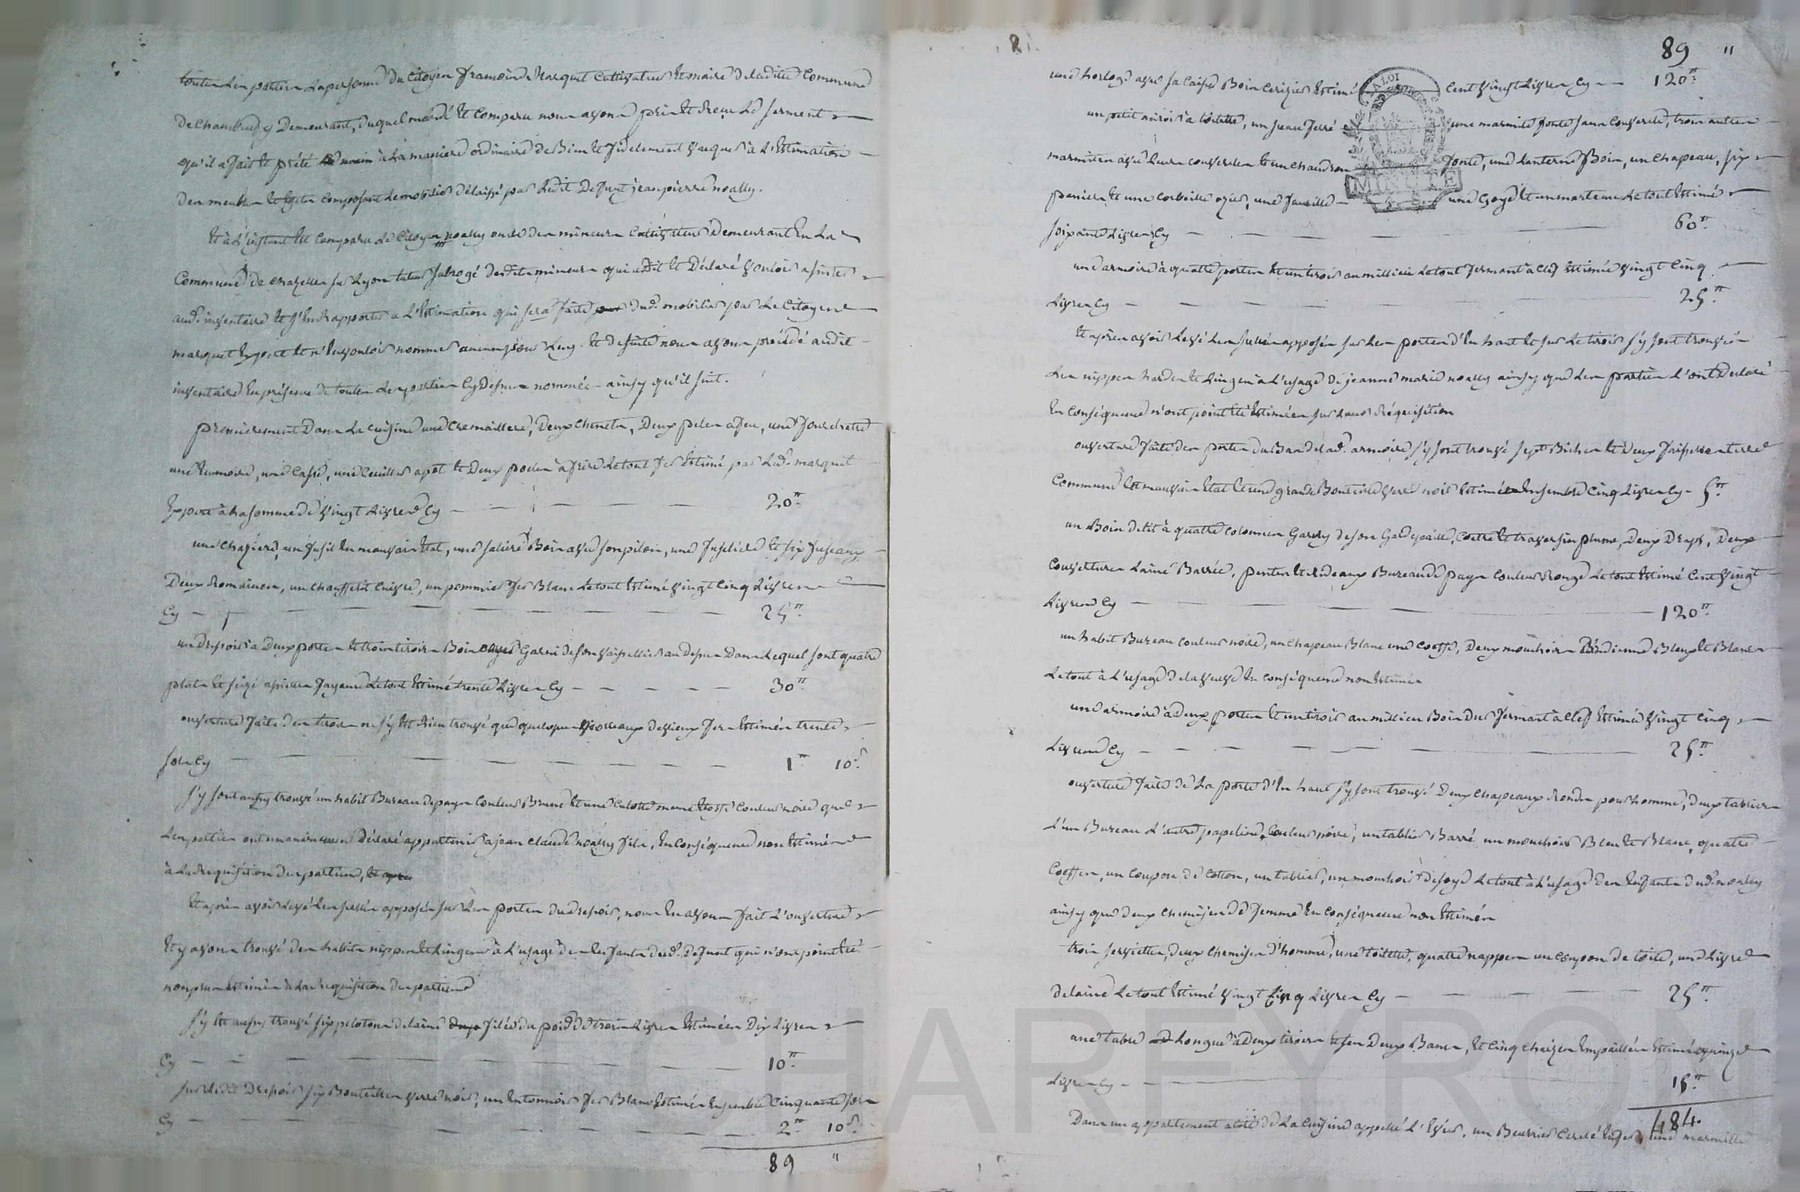 toutes les parties la personne du Citoyen françois Marquet Cultivateur Et maire de laditte Commune
de Chambost y Demeurant, duquel mandé Et Comparu nous avons prix Et Reçu Le serment
qu'il a fait Et prété à La maniere ordinaire de Bien Et fidelement vaquer à L'Estimation
Des meubles Et Effets Composant Le mobilier délaissé par Ledit Defunt jean pierre noally.
Et à L'instant Est Comparu Le Citoyen noally oncle des mineurs Cultivateur Demeurant En La
Commune de Chazelles sur Lyon tuteur subrogé desdits mineurs qui a dit Et Déclaré vouloir assister
aud. inventaire Et s'En Rapporter a L'Estimation qui sera faite dud. mobilier par Le Citoyen
marquet Expert Et n'En vouloir nommer aucun pour Luy. Et de suite nous avons procédé audit
inventaire En présence de toutes Les parties Cy Dessus nommées ainsy qu'il suit.
premierement Dans La Cuisine une Cremaillere, Deux Chenets, Deux peles a feu, une fourchette
une Ecumoire, une Casse, une Cuiller a pot Et Deux poeles à frire Le tout fer Estimé par Led. marquet
Expert à La somme de vingt Livres Cy 20.
un fusil En mauvais Etat, une saliere Bois avec son pilon, une Et six fuseaux
Deux Romaines, un Chauffelit Cuivre, un pommier fer Blanc Le tout Estimé vingt Cinq Livres
Cy 25
un Dressoir à Deux portes Et trois tiroirs Bois Garni de son vaissellier au dessus Dans Lequel sont quatre
plats Et seize assiettes fayance Le tout Estimé trente Livres Cy 30
ouverture faite des tiroirs ne s'y Est Rien trouvé que quelques Morceaux de vieux fers Estimés trente
sols Cy 1 10
s'y sont aussy trouvé un habit Bureau de pays Couleur Brune Et une Culotte meme Etoffe Couleur noire que
Les parties ont unanimement Déclaré appartenir à jean Claude noally fils, En Conséquence non Estimés
à La Requisition des parties,
Et après avoir Levé Les scellés apposés sur Les portes du dressoir, nous En avons fait L'ouverture
Et y avons trouvé des habits nippes Et Linges à L'usage des Enfants dud. Defunt qui n'ont point Eté
non plus Estimés à La Requisition des parties
s'y Est aussy trouvé six pelotons de laine filée du poids de trois Livres Estimées Dix Livres
Cy 10
sur Ledit Dressoir six Bouteilles verre noir, un Entonnoir fer Blanc Estimés Ensemble Cinquante sols
Cy 2 10
89 "
89 "
une horloge avec sa Caisse Bois Cerisier Estimé Cent vingt Livres Cy 120
un petit miroir à toilette, un seau ferré une marmite fonte sans Couvercle, trois autres
marmites avec Leurs Couvercles Et un Chaudron fonte, une Lanterne Bois, un Chapeau, six
paniers Et une Corbeille ozier, une faucille une Goye Et un marteau Le tout Estimé
soixante Livres Cy 60
une armoire à quatre portes Et un tiroir au millieu Le tout fermant à Clef Estimée vingt Cinq
Livres Cy 25
Et après avoir Levé Les scellés apposés sur Les portes d'En haut Et sur Le tiroir s'y sont trouvés
Les nippes hardes Et Linges à L'usage de jeanne marie noally ainsy que Les parties L'ont Declaré
En Conséquence n'ont point Eté Estimées sur Leur Réquisition
ouverture faite des portes du Bas de lad. armoire s'y sont trouvé sept Biches Et Deux terre
Commune En mauvais Etat Et une grande Bouteille verre noir Estimés Ensemble Cinq Livres Cy 5
un Bois de lit à quatre Colonnes Garny de son Garde paille, Coitre Et traversin plume, Deux Draps, Deux
Couvertures Laine Barrée, pentes Et Rideaux Bureau de pays Couleur Rouge Le tout Estimé Cent vingt
Livres Cy 120
un habit Bureau Couleur noire, un Chapeau Blanc une Coeffe, Deux mouchoirs Indienne Bleux Et Blancs
Le tout à L'usage de la veuve En Conséquence non Estimés
une armoire à Deux portes Et un tiroir au millieu Bois Dur fermant à Clef Estimée vingt Cinq
Livres Cy 25
ouverture faite de La porte d'En haut s'y sont trouvé Deux Chapeaux Ronds pour homme, Deux tabliers
L'un Bureau L'autre papeline, Couleur noire, un tablier Barré, un mouchoir Bleu Et Blanc, quatre
Coeffes, un Coupon de Coton, un tablier, un mouchoir de soye Le tout à L'usage des Enfants dud. noally
ainsy que deux Chemises de femme En Conséquence non Estimés
trois serviettes, deux Chemises d'homme, une toilette, quatre nappes un Coupon de toile, une Livre
de laine Le tout Estimé vingt Cinq Livres Cy 25
une table Longue à Deux tiroirs Et ses Deux Bancs, Et Cinq Chaizes Empaillées Estimés quinze
Livres Cy 15
484.
Dans un appartement à Côté de La Cuisine appellé L'Evier, un Beurrier Cerclé une marmitte
CHAREYRON